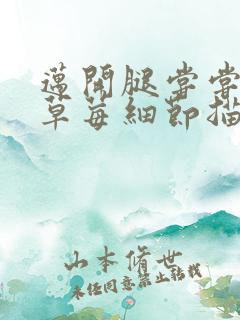 蘧開腿嘗嘗
草莓細節描
山本脩世
未经同意禁止转载